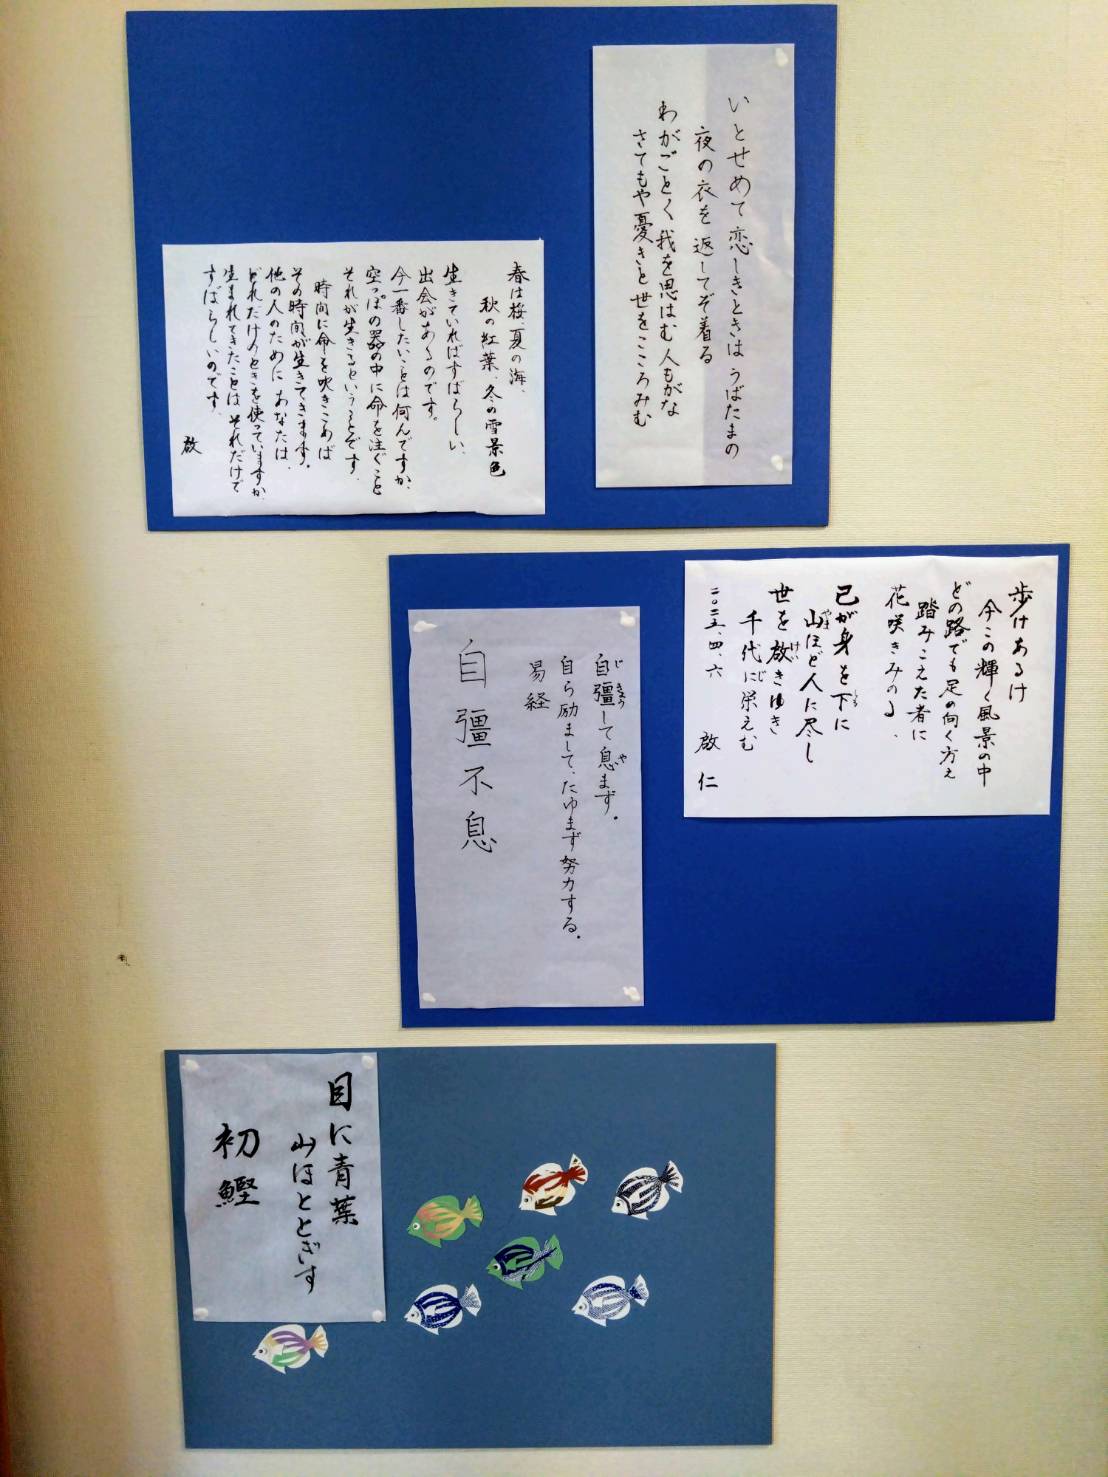 いとせめて恋しきときはうばたまの
夜の衣を返してぞ着る
わがごとく我を思はむ人もがな
さてもや憂きと世をこころみむ
春は桜、夏の海、
秋の紅葉 冬の雪景色
生きていればすばらしい、
出会があるのです。
今一番したいことは何んですか、
空っぽの器の中に命を注ぐこと
それが生きるということです、
時間に命を吹きこめば
その時間が生きてきます。
他の人のために あなたは、
どれだけのときを使っていますか、
生まれてきたことは それだけで
すばらしいのです、
啓
歩けあるけ
今この輝く風景の中
どの路でも足の向く方え
踏みこえた者に
花咲きみのる、
己が身を下に
山ほど人に尽し
世を啓きゆき
千代に栄えむ
二〇二五、四、六 啓 仁
自彊して息まず。
自ら励まして、たゆまず努力する。
易経
自彊不息
目に青葉
山ほととぎす
初鰹